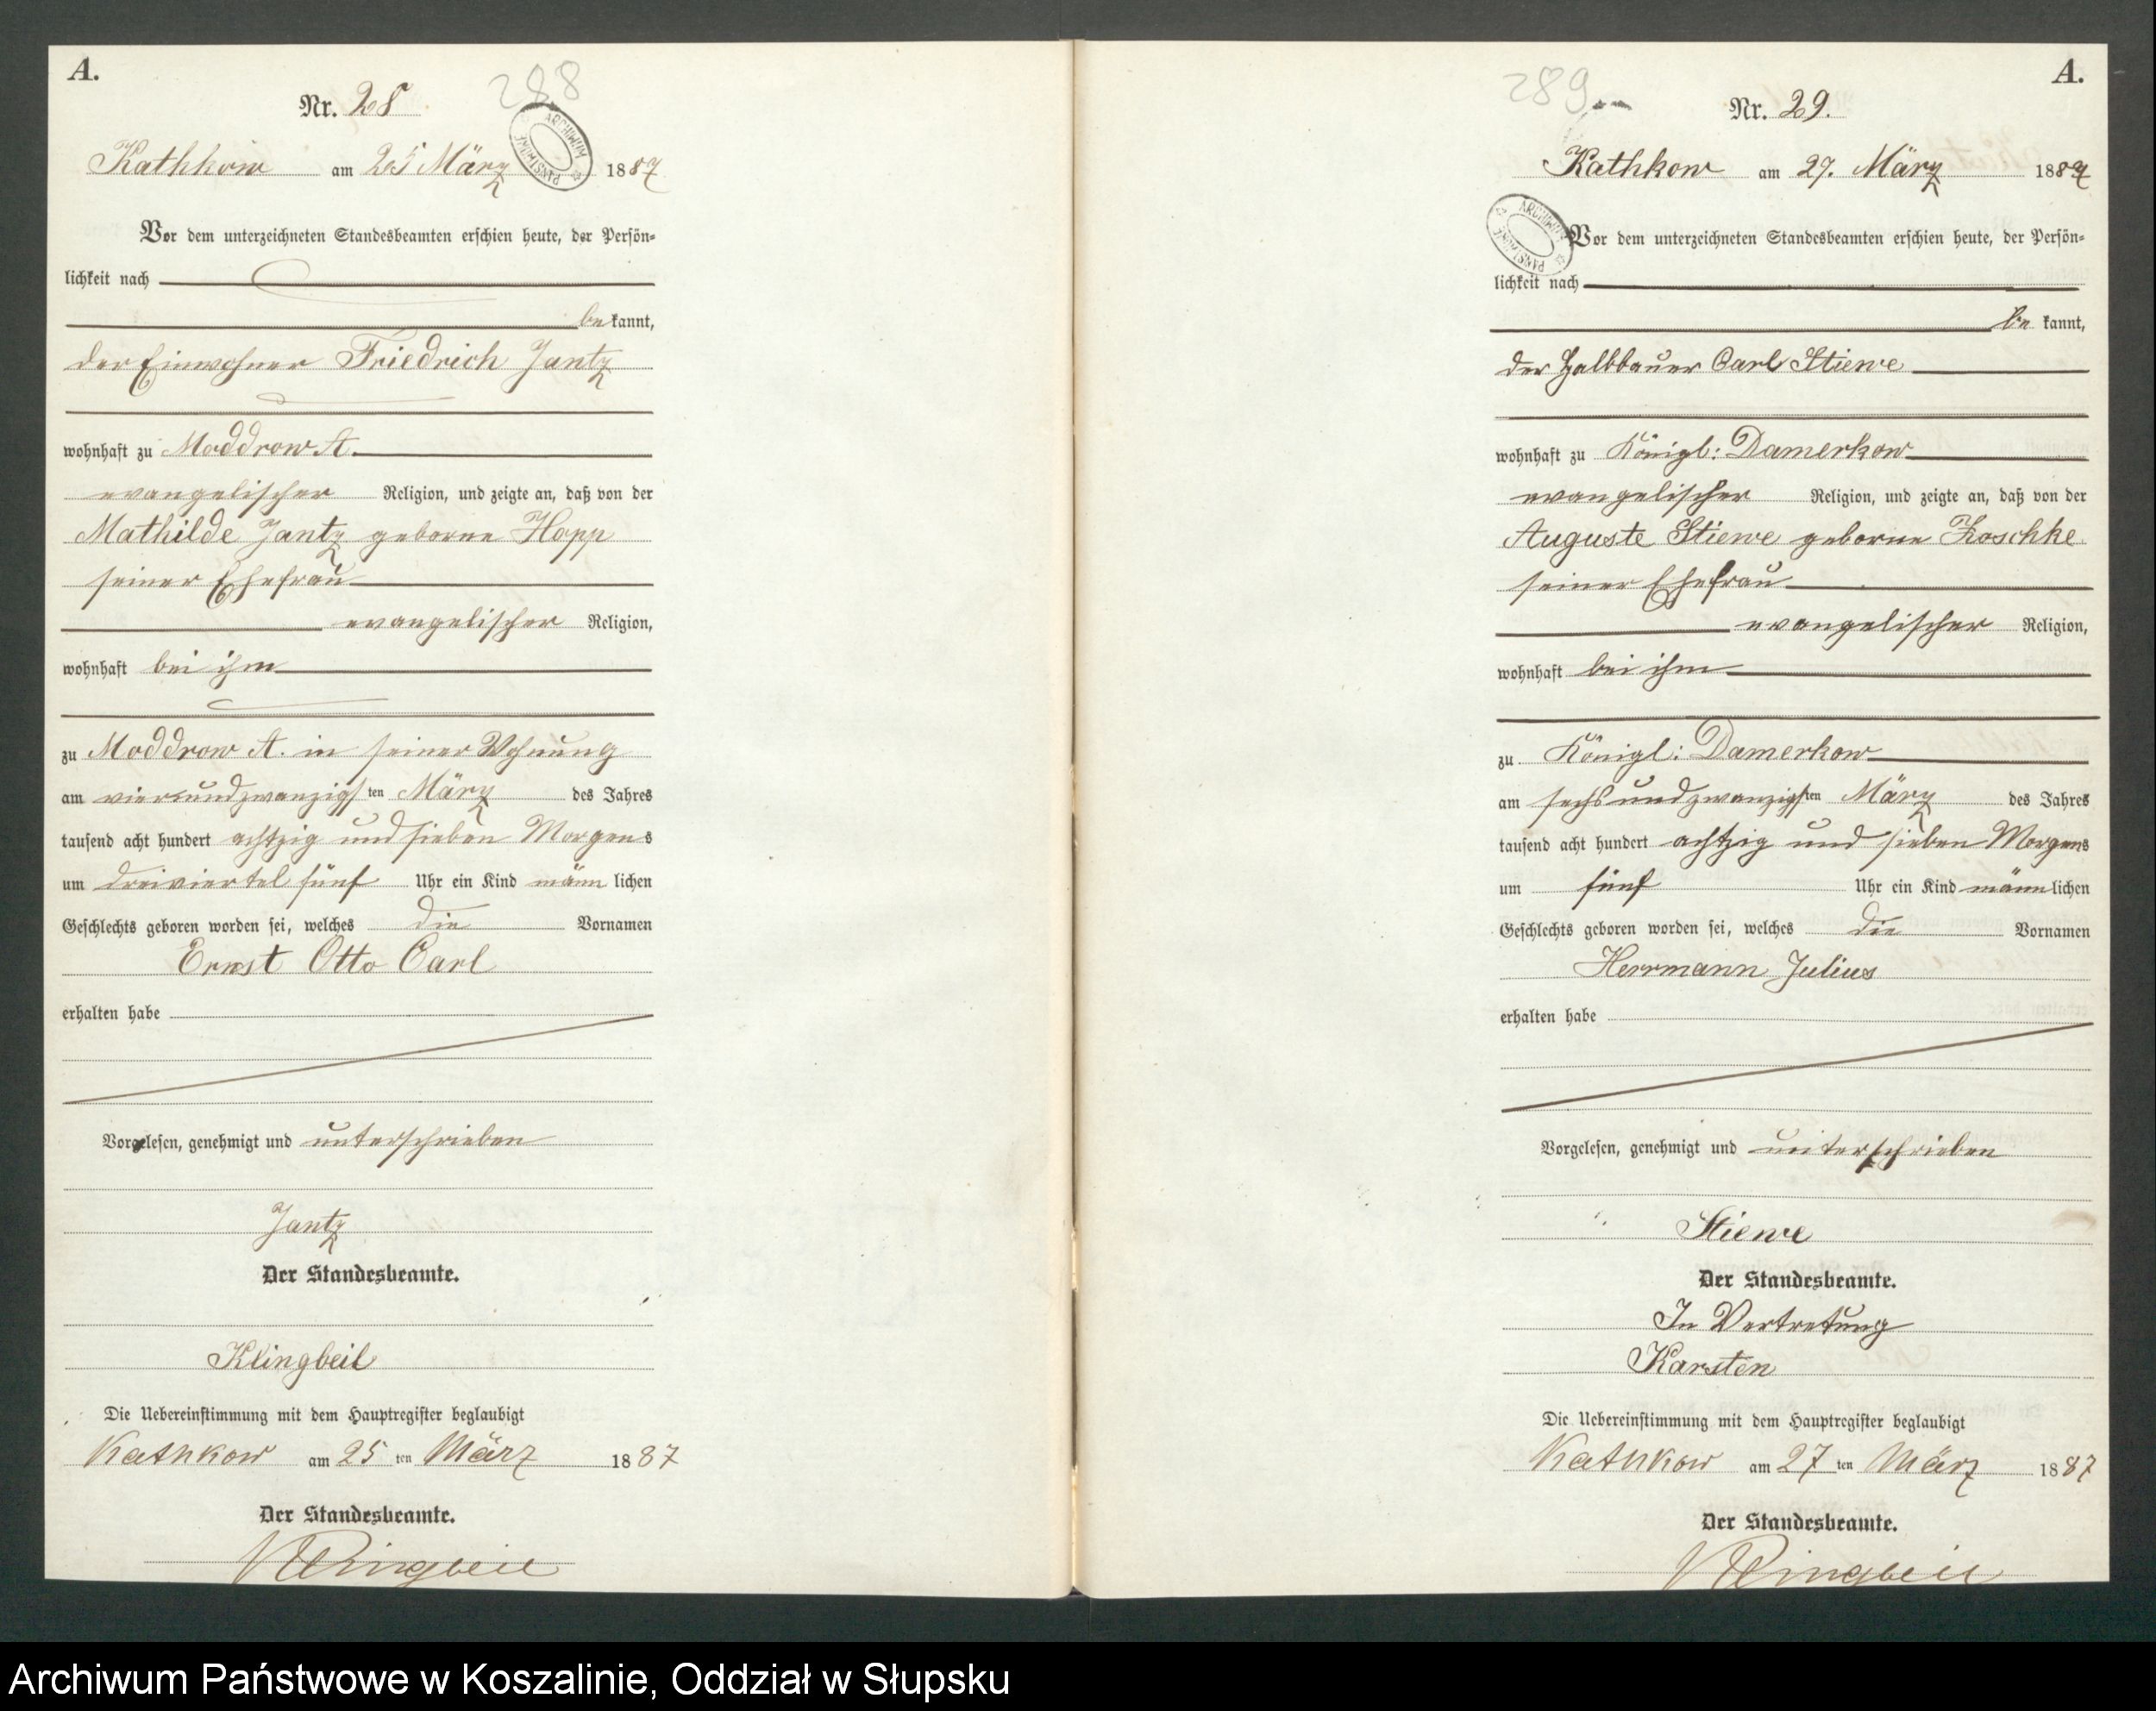 A.
288
Nr. 28
ARCHIWUM PAŃSTWOWE
Kathkow am 25 März 1887
Vor dem unterzeichneten Standesbeamten erschien heute, der Persön-
lichkeit nach
bekannt,
der Einwohner Friedrich Jantz
wohnhaft zu Moddrow A.
evangelischer Religion, und zeigte an, daß von der
Mathilde Jantz geborne Hopp
seiner Ehefrau
evangelischer Religion,
wohnhaft bei ihm
zu Moddrow A. in seiner Wohnung
am vierundzwanzigsten März des Jahres
tausend acht hundert achtzig und sieben Morgens
um dreiviertel fünf Uhr ein Kind männlichen
Geschlechts geboren worden sei, welches die Vornamen
Ernst Otto Carl
erhalten habe
Vorgelesen, genehmigt und unterschrieben
Jantz
Der Standesbeamte.
Klingbeil
Die Uebereinstimmung mit dem Hauptregister beglaubigt
Kathkow am 25ten März 1887
Der Standesbeamte.
Klingbeil
A.
289
Nr. 29.
Kathkow am 27. März 1887
ARCHIWUM PAŃSTWOWE
Vor dem unterzeichneten Standesbeamten erschien heute, der Persön-
lichkeit nach
bekannt,
der Halbbauer Carl Stiewe
wohnhaft zu Königl: Damerkow
evangelischer Religion, und zeigte an, daß von der
Auguste Stiewe geborne Koschke
seiner Ehefrau
evangelischer Religion,
wohnhaft bei ihm
zu Königl: Damerkow
am sechsundzwanzigsten März des Jahres
tausend acht hundert achtzig und sieben Morgens
um fünf Uhr ein Kind männlichen
Geschlechts geboren worden sei, welches die Vornamen
Herrmann Julius
erhalten habe
Vorgelesen, genehmigt und unterschrieben
Stiewe
Der Standesbeamte.
In Vertretung
Karsten
Die Uebereinstimmung mit dem Hauptregister beglaubigt
Kathkow am 27ten März 1887
Der Standesbeamte.
Klingbeil
Archiwum Państwowe w Koszalinie, Oddział w Słupsku